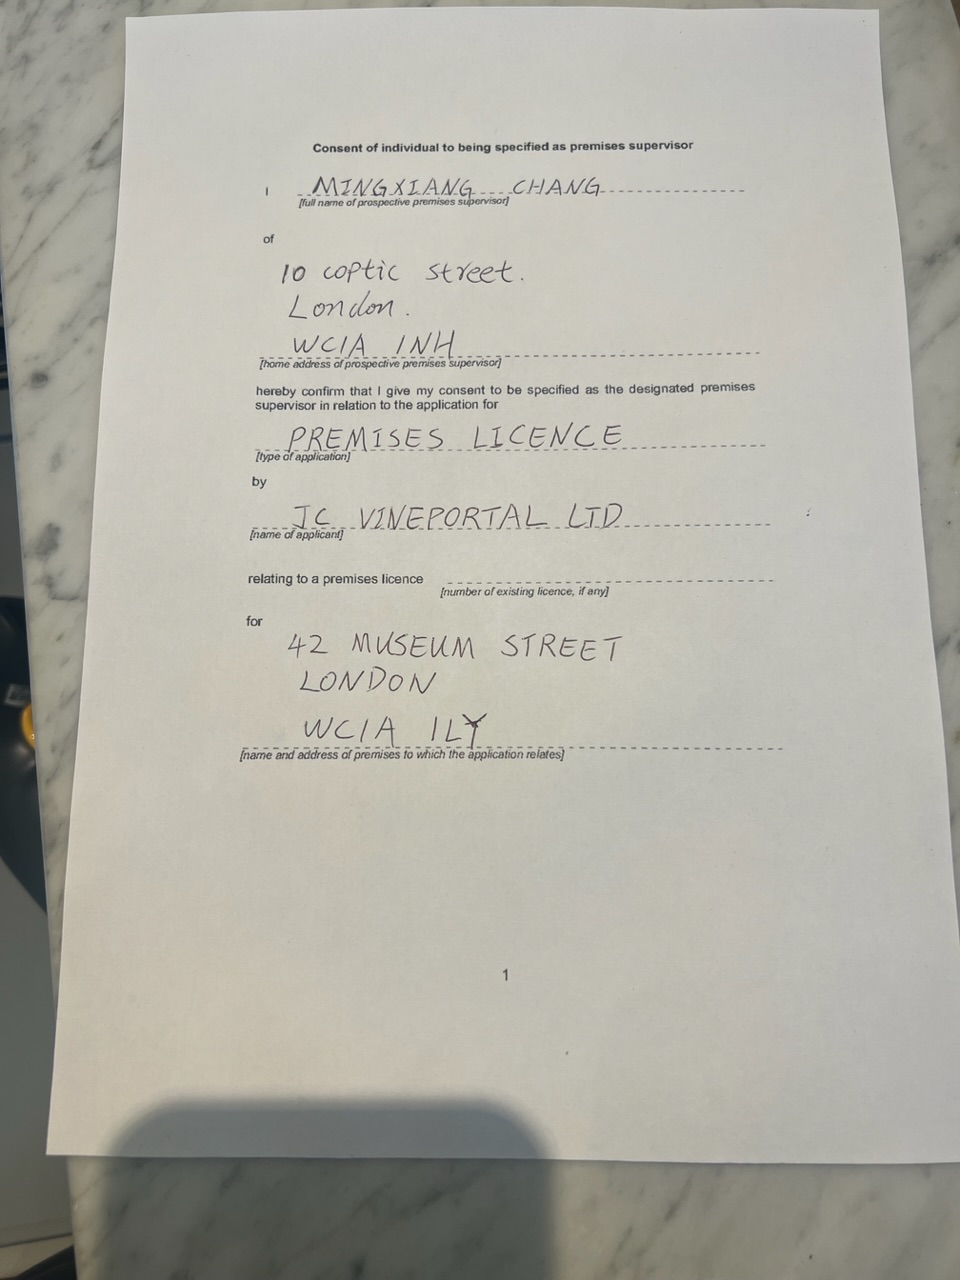 Consent of individual to being specified as premises supervisor
I MINGXIANG CHANG
[full name of prospective premises supervisor]
of
10 coptic street.
London.
WC1A 1NH
[home address of prospective premises supervisor]
hereby confirm that I give my consent to be specified as the designated premises
supervisor in relation to the application for
PREMISES LICENCE
[type of application]
by
JC VINEPORTAL LTD
[name of applicant]
relating to a premises licence
[number of existing licence, if any]
for
42 MUSEUM STREET
LONDON
WC1A 1LY
[name and address of premises to which the application relates]
1